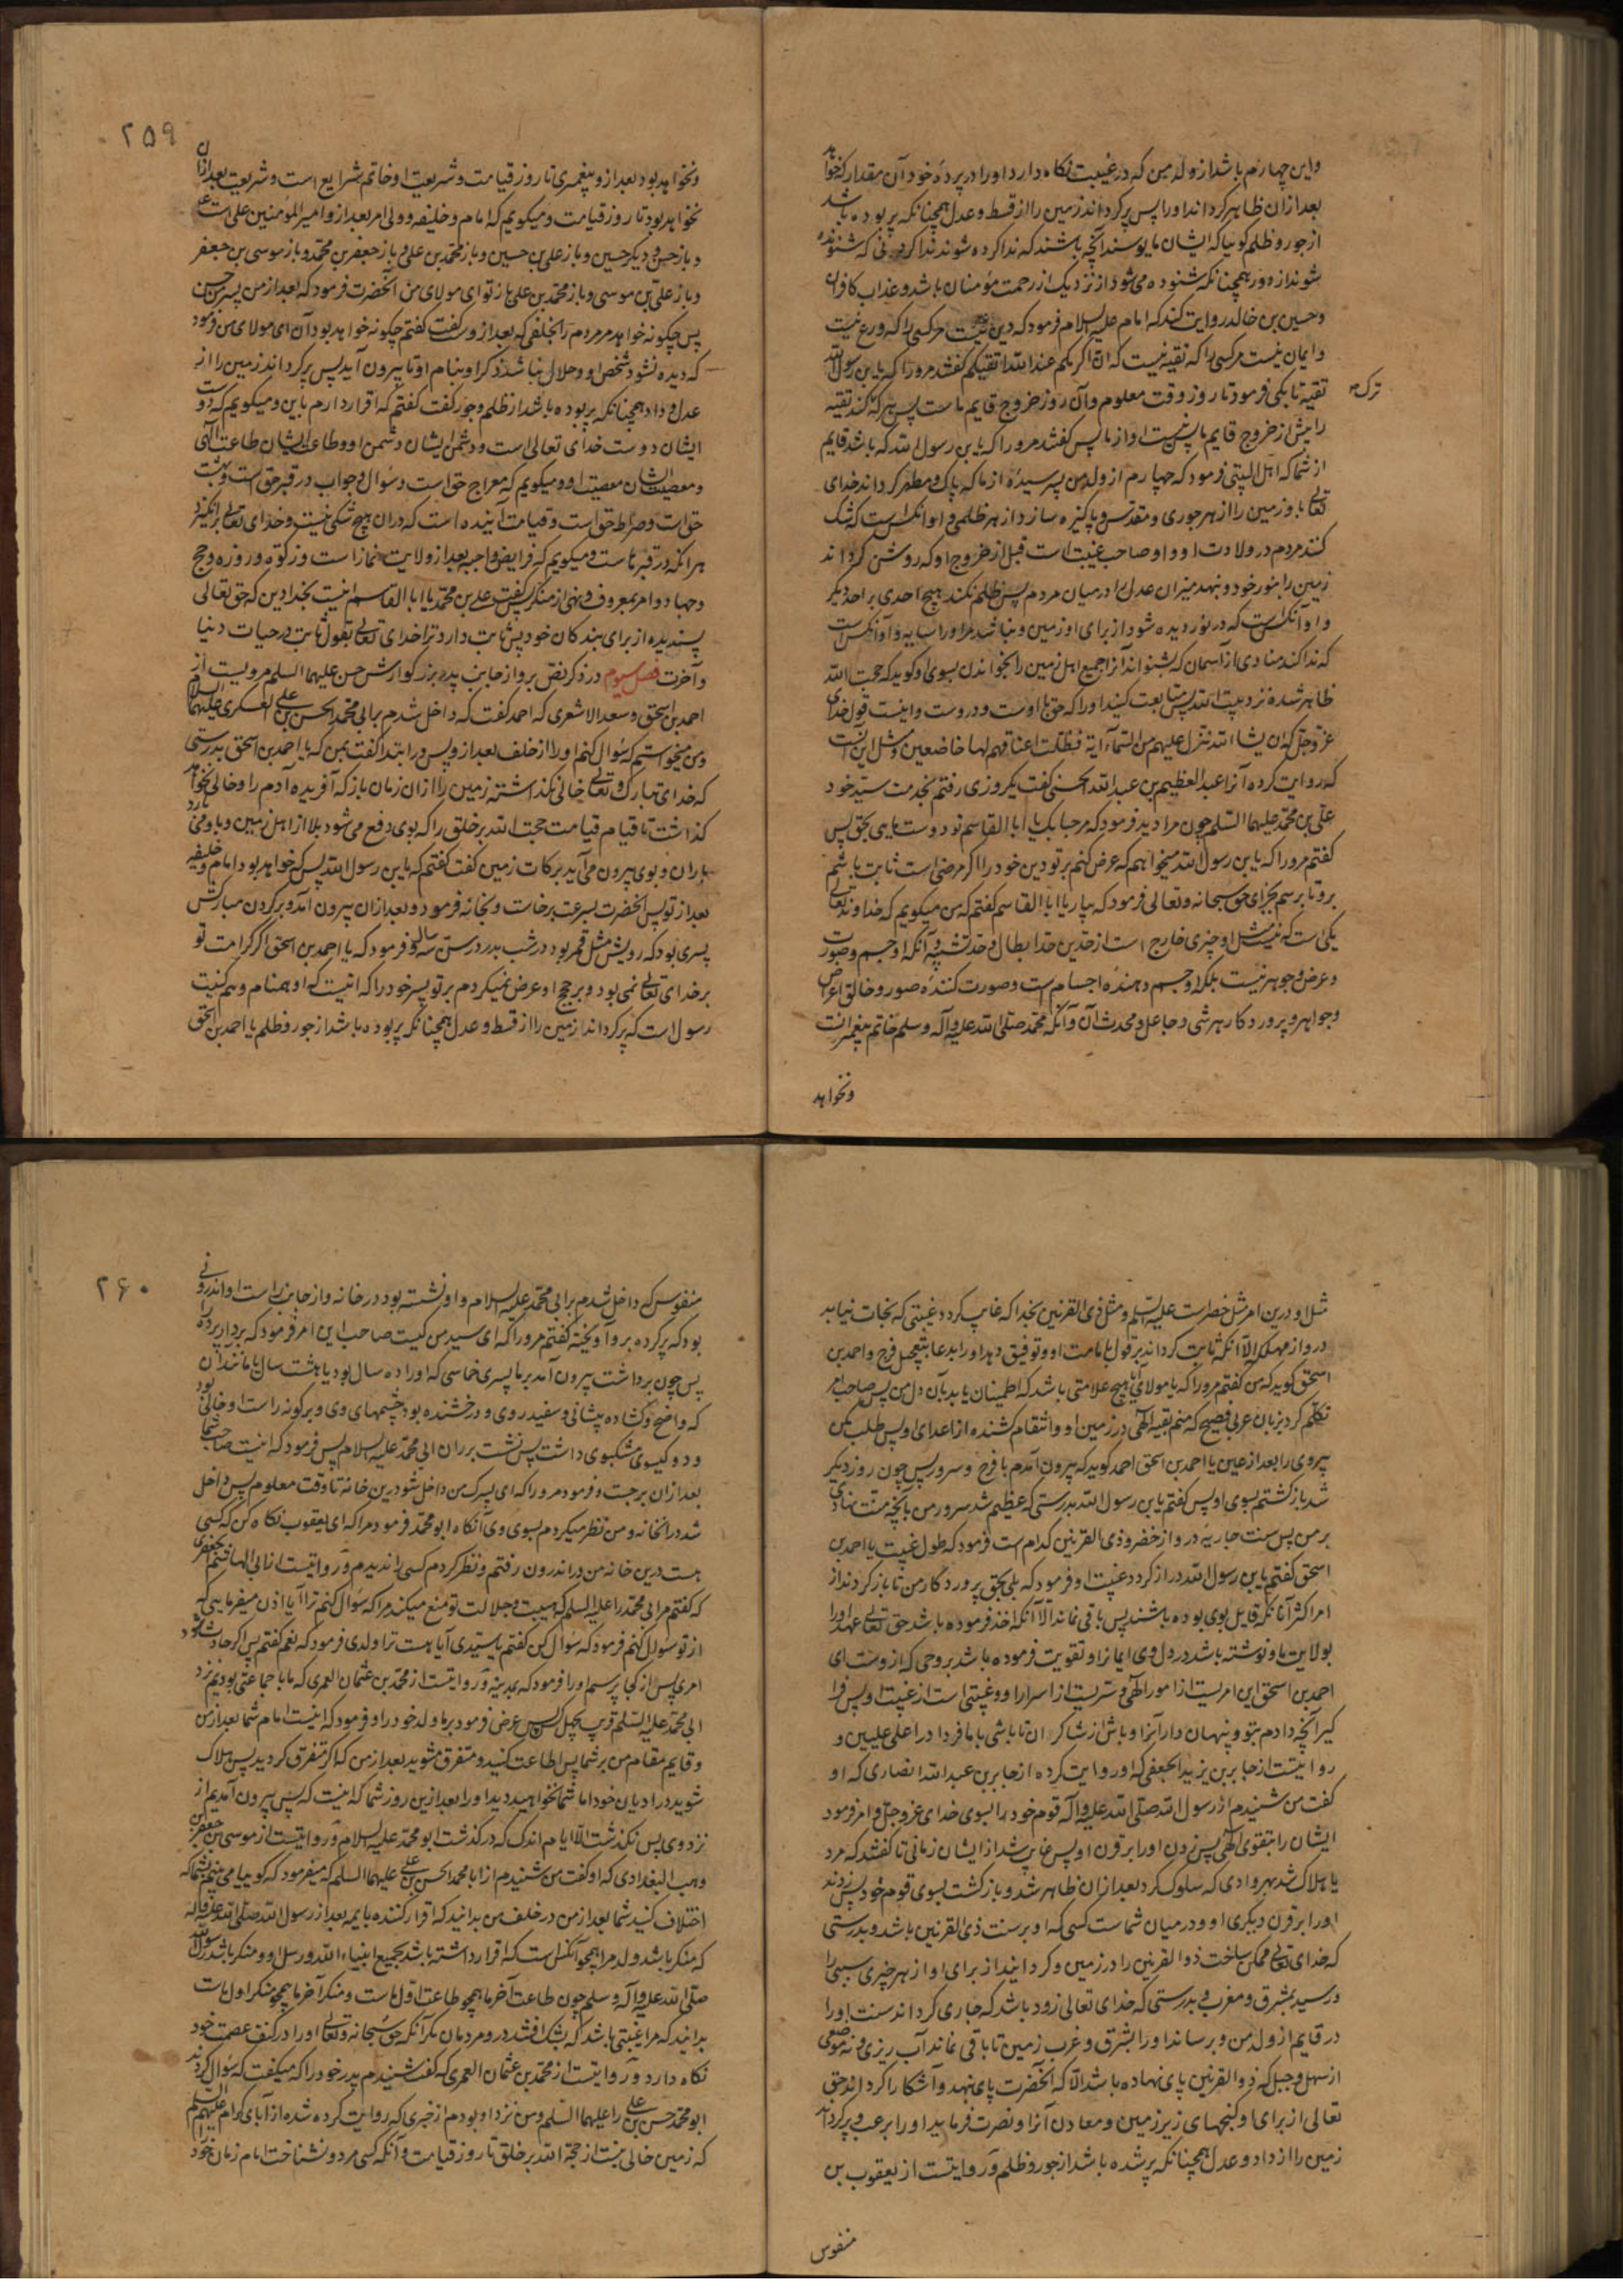 واین چهارم باشد از ولد من که در غیبت نکاه دارد او را در پرده خود آن مقدار که خواهد
بعد ازان ظاهر کرداند او را پس پر کرداند زمین را از قسط و عدل همچنانکه پر بوده باشد
از جور و ظلم کوییا که ایشان مایوسند آنچه باشند که ندا کرده شوند ندا کردنی که شنوده
شوند از دور همچنانکه شنوده می شود از نزدیک از رحمت مؤمنان باشد و عذاب کافران
و حسین بن خالد روایت کند که امام علیه السلام فرمود که دین نیست مر کسی را که ورع نیست
و ایمان نیست مر کسی را که تقیه نیست که ان اکرمکم عند الله اتقیکم کفتند مرو را که یا بن رسول الله
ترک
تقیه تا بکی فرمود تا روز وقت معلوم و آن روز خروج قایم ماست پس هر که ترک کند تقیه
را پیش از خروج قایم ما پس نیست او از ما پس کفتند مرو را که یا بن رسول الله که باشد قایم
از شما که اهل البیتی فرمود که چهارم از ولد من پسر سیده از ما که پاک و مطهر کرداند خدای
تعالی باو زمین را از هر جوری و مقدس و پاکیزه سازد از هر ظلمی و او انکس است که شک
کنند مردم در ولادت او و او صاحب غیبت است قبل از خروج او که روشن کرداند
زمین را بنور خود و نهد میزان عدل را در میان مردم پس ظلم نکند هیچ احدی بر احد دیکر
و او آنکس است که در نور دیده شود از برای او زمین و نباشد مر او را سایه و او آنکس است
که ندا کند منادی از آسمان که بشنواند آنرا جمیع اهل زمین را بخواندن بسوی او کوید که حجت الله
ظاهر شده نزد بیت الله پس متابعت کنید او را که حق با اوست و در اوست و اینست قول خدای
عز وجل که ان یشا الله ننزل علیهم من السماء آیة فظلت اعناقهم لها خاضعین و مثل این است
که روایت کرده آنرا عبد العظیم بن عبد الله الحسنی کفت یکروزی رفتم بخدمت سید خود
علی بن محمد علیهما السلم چون مرا دید فرمود که مرحبا بک یا ابا القاسم تو دوست مایی بحق پس
کفتم مرو را که یا بن رسول الله میخواهم که عرض کنم بر تو دین خود را اکر مرضی است ثابت باشم
برو تا برسم بجزای حق سبحانه و تعالی فرمود که بیار یا ابا القاسم کفتم که من میکویم که خداوند تعالی
یکی است که نیست مثل او چیزی خارج است از حدین حد ابطال و حد تشبیه و آنکه او جسم و صورت
و عرض و جوهر نیست بلکه او جسم دهنده اجسام است و صورت کننده صور و خالق اعراض
و جواهر و پروردکار هر شی و جاعل و محدث آن و آنکه محمد صلی الله علیه و آله و سلم خاتم پیغمبرانست
ونخواهد
۲۵۹
ونخواهد بود بعد از و پیغمبری تا روز قیامت و شریعت او خاتم شرایع است و شریعت بعد ازان
نخواهد بود تا روز قیامت و میکویم که امام و خلیفه و ولی امر بعد از و امیر المؤمنین علی است
و باز حسن و دیکر حسین و باز علی بن حسین و باز محمد بن علی و باز جعفر بن محمد و باز موسی بن جعفر
و باز علی بن موسی و باز محمد بن علی باز تو ای مولای من آنحضرت فرمود که بعد از من پسر من حسن
پس چکونه خواهد مر مردم را بخلفی که بعد از وست کفت کفتم چکونه خواهد بود آن ای مولای من فرمود
که دیده نشود شخص او و حلال نباشد ذکر او بنام او تا بیرون آید پس پر کرداند زمین را از
عدل و داد همچنانکه پر بوده باشد از ظلم و جور کفت کفتم که اقرار دارم باین و میکویم که دوست
ایشان دوست خدای تعالی است و دشمن ایشان دشمن او و طاعت ایشان طاعت الهی
و معصیت ایشان معصیت او و میکویم که معراج حق است و سؤال و جواب در قبر حق است و بهشت
حق است و صراط حق است و قیامت آینده است که دران هیچ شکی نیست و خدای تعالی برانکیزد
هر انکه در قبرهاست و میکویم که فرایض واجبه بعد از ولایت نماز است و زکوة و روزه و حج
و جهاد و امر بمعروف و نهی از منکر پس کفت علی بن محمد یا ابا القاسم اینست بخدا دین که حق تعالی
پسندیده از برای بندکان خود پس ثابت دارد ترا خدای تعالی بقول ثابت در حیات دنیا
و آخرت فصل سیوم در ذکر نص برو از جانب پدر بزرکوارش حسن علیهما السلم مرویست از
احمد بن اسحق و سعد الاشعری که احمد کفت که داخل شدم بر ابی محمد الحسن بن علی العسکری علیهما السلام
و من میخواستم که سؤال کنم او را از خلف بعد از و پس در ابتدا کفت بمن که یا احمد بن اسحق بدرستی
که خدای تبارک و تعالی خالی نکذاشته زمین را ازان زمان باز که آفریده آدم را و خالی نخواهد
کذاشت تا قیام قیامت حجت الله بر خلق را که بوی دفع می شود بلا از اهل زمین و باو می بارد
باران و بوی بیرون می آید برکات زمین کفت کفتم که یا بن رسول الله پس که خواهد بود امام و خلیفه
بعد از تو پس انحضرت بسرعت برخاست و بخانه فرمود و بعد ازان بیرون آمد و بر کردن مبارکش
پسری بود که رویش مثل قمر بود در شب بدر در سن سه سالکی و فرمود که یا احمد بن اسحق اکر کرامت تو
بر خدای تعالی نمی بود و بر حجج او عرض نمیکردم بر تو پسر خود را که اینست که او همنام و هم کنیت
رسول است که پر کرداند زمین را از قسط و عدل همچنانکه پر بوده باشد از جور و ظلم یا احمد بن اسحق
مثل او درین امر مثل خضر است علیه السلم و مثل ذی القرنین بخدا که غایب کردد غیبتی که نجات نیابد
درو از مهلکه الا آنکه ثابت کرداند بر قول بامامت او و توفیق دهد او را بدعا بتعجیل فرج و احمد بن
اسحق کوید که من کفتم مرو را که یا مولای آیا هیچ علامتی باشد که اطمینان یابد بآن دل من پس صاحب امر
تکلم کرد بزبان عربی فصیح که منم بقیه الهی در زمین او و انتقام کشنده از اعدای او پس طلب مکن
پیروی را بعد از عین یا احمد بن اسحق احمد کوید که بیرون آمدم با فرح و سرور پس چون روز دیکر
شد بازکشتم بسوی او پس کفتم یا بن رسول الله بدرستی که عظیم شد سرور من بآنچه منت نهادی
بر من پس سنت جاریه درو از خضر و ذی القرنین کدام است فرمود که طول غیبت یا احمد بن
اسحق کفتم یا بن رسول الله دراز کردد غیبت او فرمود که بلی بحق پروردکار من تا باز کردند از
امر اکثر آنانکه قایل بوی بوده باشند پس باقی نماند الا آنکه اخذ فرموده باشد حق تعالی عهد او را
بولایت ما و نوشته باشد در دل وی ایمانرا و تقویت فرموده باشد بروحی که از وست ای
احمد بن اسحق این امریست از امور الهی و سریست از اسرار او و غیبتی است از غیبت او پس فرا
کیر آنچه دادم بتو و پنهان دار آنرا و باش از شاکران تا باشی با ما فردا در اعلی علیین و
روایتست از جابر بن یزید الجعفی که او روایت کرده از جابر بن عبد الله انصاری که او
کفت من شنیدم از رسول الله صلی الله علیه و آله قوم خود را بسوی خدای عز وجل و امر فرمود
ایشان را بتقوی الهی پس زدن او را بر قرن او پس غایب شد از ایشان زمانی تا کفتند که مرد
یا هلاک شد بهر وادی که سلوک کرد بعد ازان ظاهر شد و بازکشت بسوی قوم خود پس زدند
او را بر قرن دیکری او و در میان شما ست کسی که او بر سنت ذی القرنین باشد و بدرستی
که خدای تعالی ممکن ساخت ذو القرنین را در زمین و کردانید از برای او از هر چیزی سببی را
و رسید بمشرق و مغرب و بدرستی که خدای تعالی زود باشد که جاری کرداند سنت او را
در قایم از ولد من و برساند او را بشرق و غرب زمین تا باقی نماند آب ریزی و نه موضعی
از سهل و جبل که ذو القرنین پای نهاده باشد الا که آنحضرت پای نهد و آشکارا کرداند حق
تعالی از برای او کنجهای زیر زمین و معادن آنرا و نصرت فرماید او را برعب و پر کرداند
زمین را از داد و عدل همچنانکه پر شده باشد از جور و ظلم و روایتست از یعقوب بن
منفوس
۲۶۰
منفوس که داخل شدم بر ابی محمد علیه السلام و او نشسته بود در خانه و از جانب راست او اندرونی
بود که پرکرده برو آویخته کفتم مرو را که ای سید من کیست صاحب این امر فرمود که بردار پرده
پس چون برداشت بیرون آمد بر ما پسری خماسی که او را ده سال بود یا هشت سال یا مانند ان
که واضح و کشاده پیشانی و سفید روی و درخشنده بود چشمهای وی و بر کونه راست او خالی بود
و دو کیسوی مشکبوی داشت پس نشست بر ران ابی محمد علیه السلام پس فرمود که اینست صاحب شما
بعد ازان برجست و فرمود مرو را که ای پسرک من داخل شو درین خانه تا وقت معلوم پس داخل
شد در انخانه و من نظر میکردم بسوی وی آنکاه ابو محمد فرمود مرا که ای یعقوب نکاه کن که کسی
هست درین خانه من در اندرون رفتم و نظر کردم کسی را ندیدم و روایتست از ابی الهاشم جعفری
که کفتم مر ابی محمد را علیه السلم که هیبت و جلالت تو منع میکند مرا که سؤال کنم ترا آیا اذن میفرمایی که
از تو سؤال کنم فرمود که سؤال کن کفتم یا سیدی آیا هست ترا ولدی فرمود که نعم کفتم پس اکر حادث شود
امری پس از کجا پرسم او را فرمود که بمدینه و روایتست از محمد بن عثمان العمری که ما با جماعتی بودیم نزد
ابی محمد علیه السلم قریب بچهل کس پس عرض فرمود بر ما ولد خود را و فرمود که اینست امام شما بعد از من
و قایم مقام من بر شما پس اطاعت کنید و متفرق مشوید بعد از من که اکر متفرق کردید پس هلاک
شوید در ادیان خود اما شما نخواهید دید او را بعد ازین روز شما که اینست که پس بیرون آمدیم از
نزد وی پس نکذشت الا ایام اندک که درکذشت ابو محمد علیه السلام و روایتست از موسی بن جعفر بن
وهب البغدادی که او کفت من شنیدم از ابا محمد الحسن بن علی علیهما السلم که میفرمود که کوییا می بینم شما که
اختلاف کنید شما بعد از من در خلف من بدانید که اقرار کننده بایمه بعد از رسول الله صلی الله علیه و آله
که منکر باشد ولد مرا همچو آنکس است که اقرار داشته باشد بجمیع انبیاء الله و رسل او و منکر باشد رسول الله
صلی الله علیه و آله و سلم چون طاعت آخر ما همچو طاعت اول ماست و منکر آخر ما همچو منکر اول ماست
بدانید که مرا غیبتی باشد که بشک افتند درو مردمان مکر آنکه حق سبحانه و تعالی او را در کنف عصمت خود
نکاه دارد و روایتست از محمد بن عثمان العمری که کفت شنیدم پدر خود را که میکفت که سؤال کردند
ابو محمد حسن بن علی را علیهما السلم و من نزد او بودم از خبری که روایت کرده شده از آبای کرام علیهم السلم
که زمین خالی نیست از حجة الله بر خلق تا روز قیامت و آنکه کسی مرد و نشناخت امام زمان خود